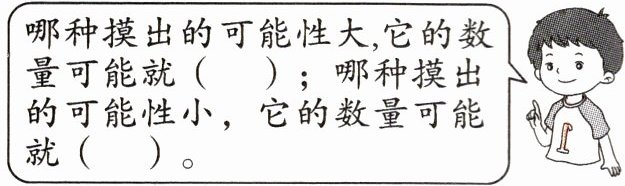 哪种摸出的可能性大,它的数
量可能就(    );哪种摸出
的可能性小,它的数量可能
就(    )。